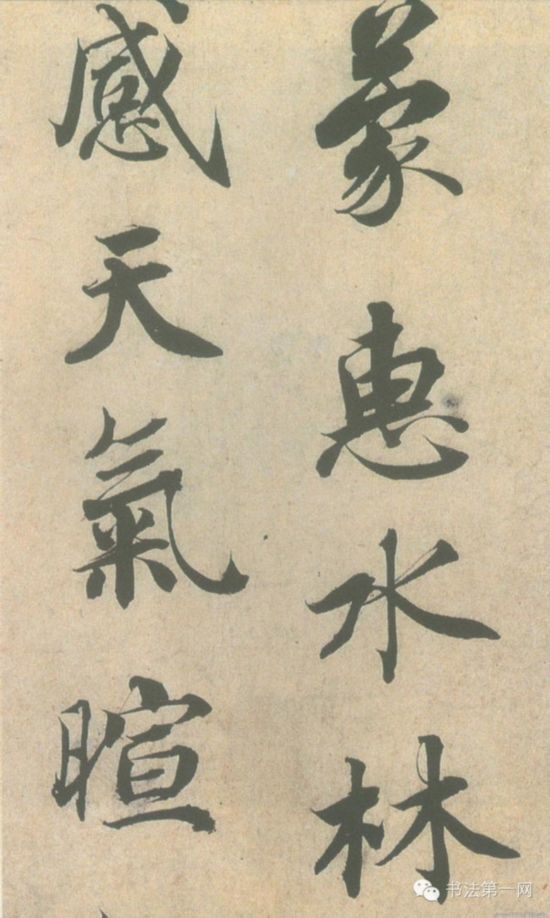 蒙惠水林
感天氣暄
书法第一网